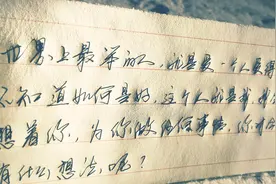 世界上最笨的人，就是爱一个人爱得
不知道如何是好，这个人就是我，我
想着你，为你做任何事情，你
有什么想法呢？